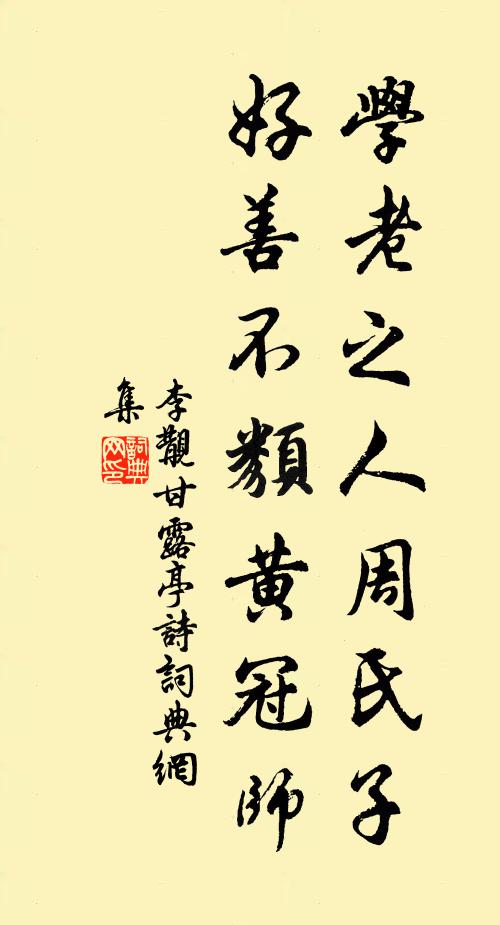 學老之人周氏子
好善不類黃冠師
李觀甘露亭詩詞典網
集
詞典網印